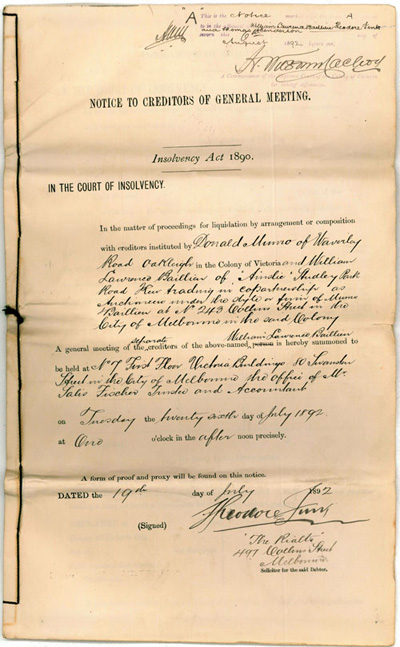 "A"
This is the Notice
A
William Lawrence Baillieu Theodore Fink
and Thomas Henderson
August 1892
NOTICE TO CREDITORS OF GENERAL MEETING.
Insolvency Act 1890.
IN THE COURT OF INSOLVENCY.
In the matter of proceedings for liquidation by arrangement or composition
with creditors instituted by Donald Munro of Waverley
Road Oakleigh in the Colony of Victoria and William
Lawrence Baillieu of "Ainslie" Studley Park
Road Kew trading in copartnership as
Auctioneers under the style or firm of Munro
Baillieu at No 243 Collins Street in the
City of Melbourne in the said Colony
separate William Lawrence Baillieu
A general meeting of the creditors of the above-named person is hereby summoned to
be held at No 7 First Floor Victoria Buildings 80 Swanston
Street in the City of Melbourne the office of Mr
Fischer Trustee and Accountant
on Tuesday the twenty sixth day of July 1892
at One o'clock in the after noon precisely.
A form of proof and proxy will be found on this notice.
DATED the 19th day of July 1892
(Signed) Theodore Fink
"The Rialto"
497 Collins Street
Melbourne
Solicitor for the said Debtor.